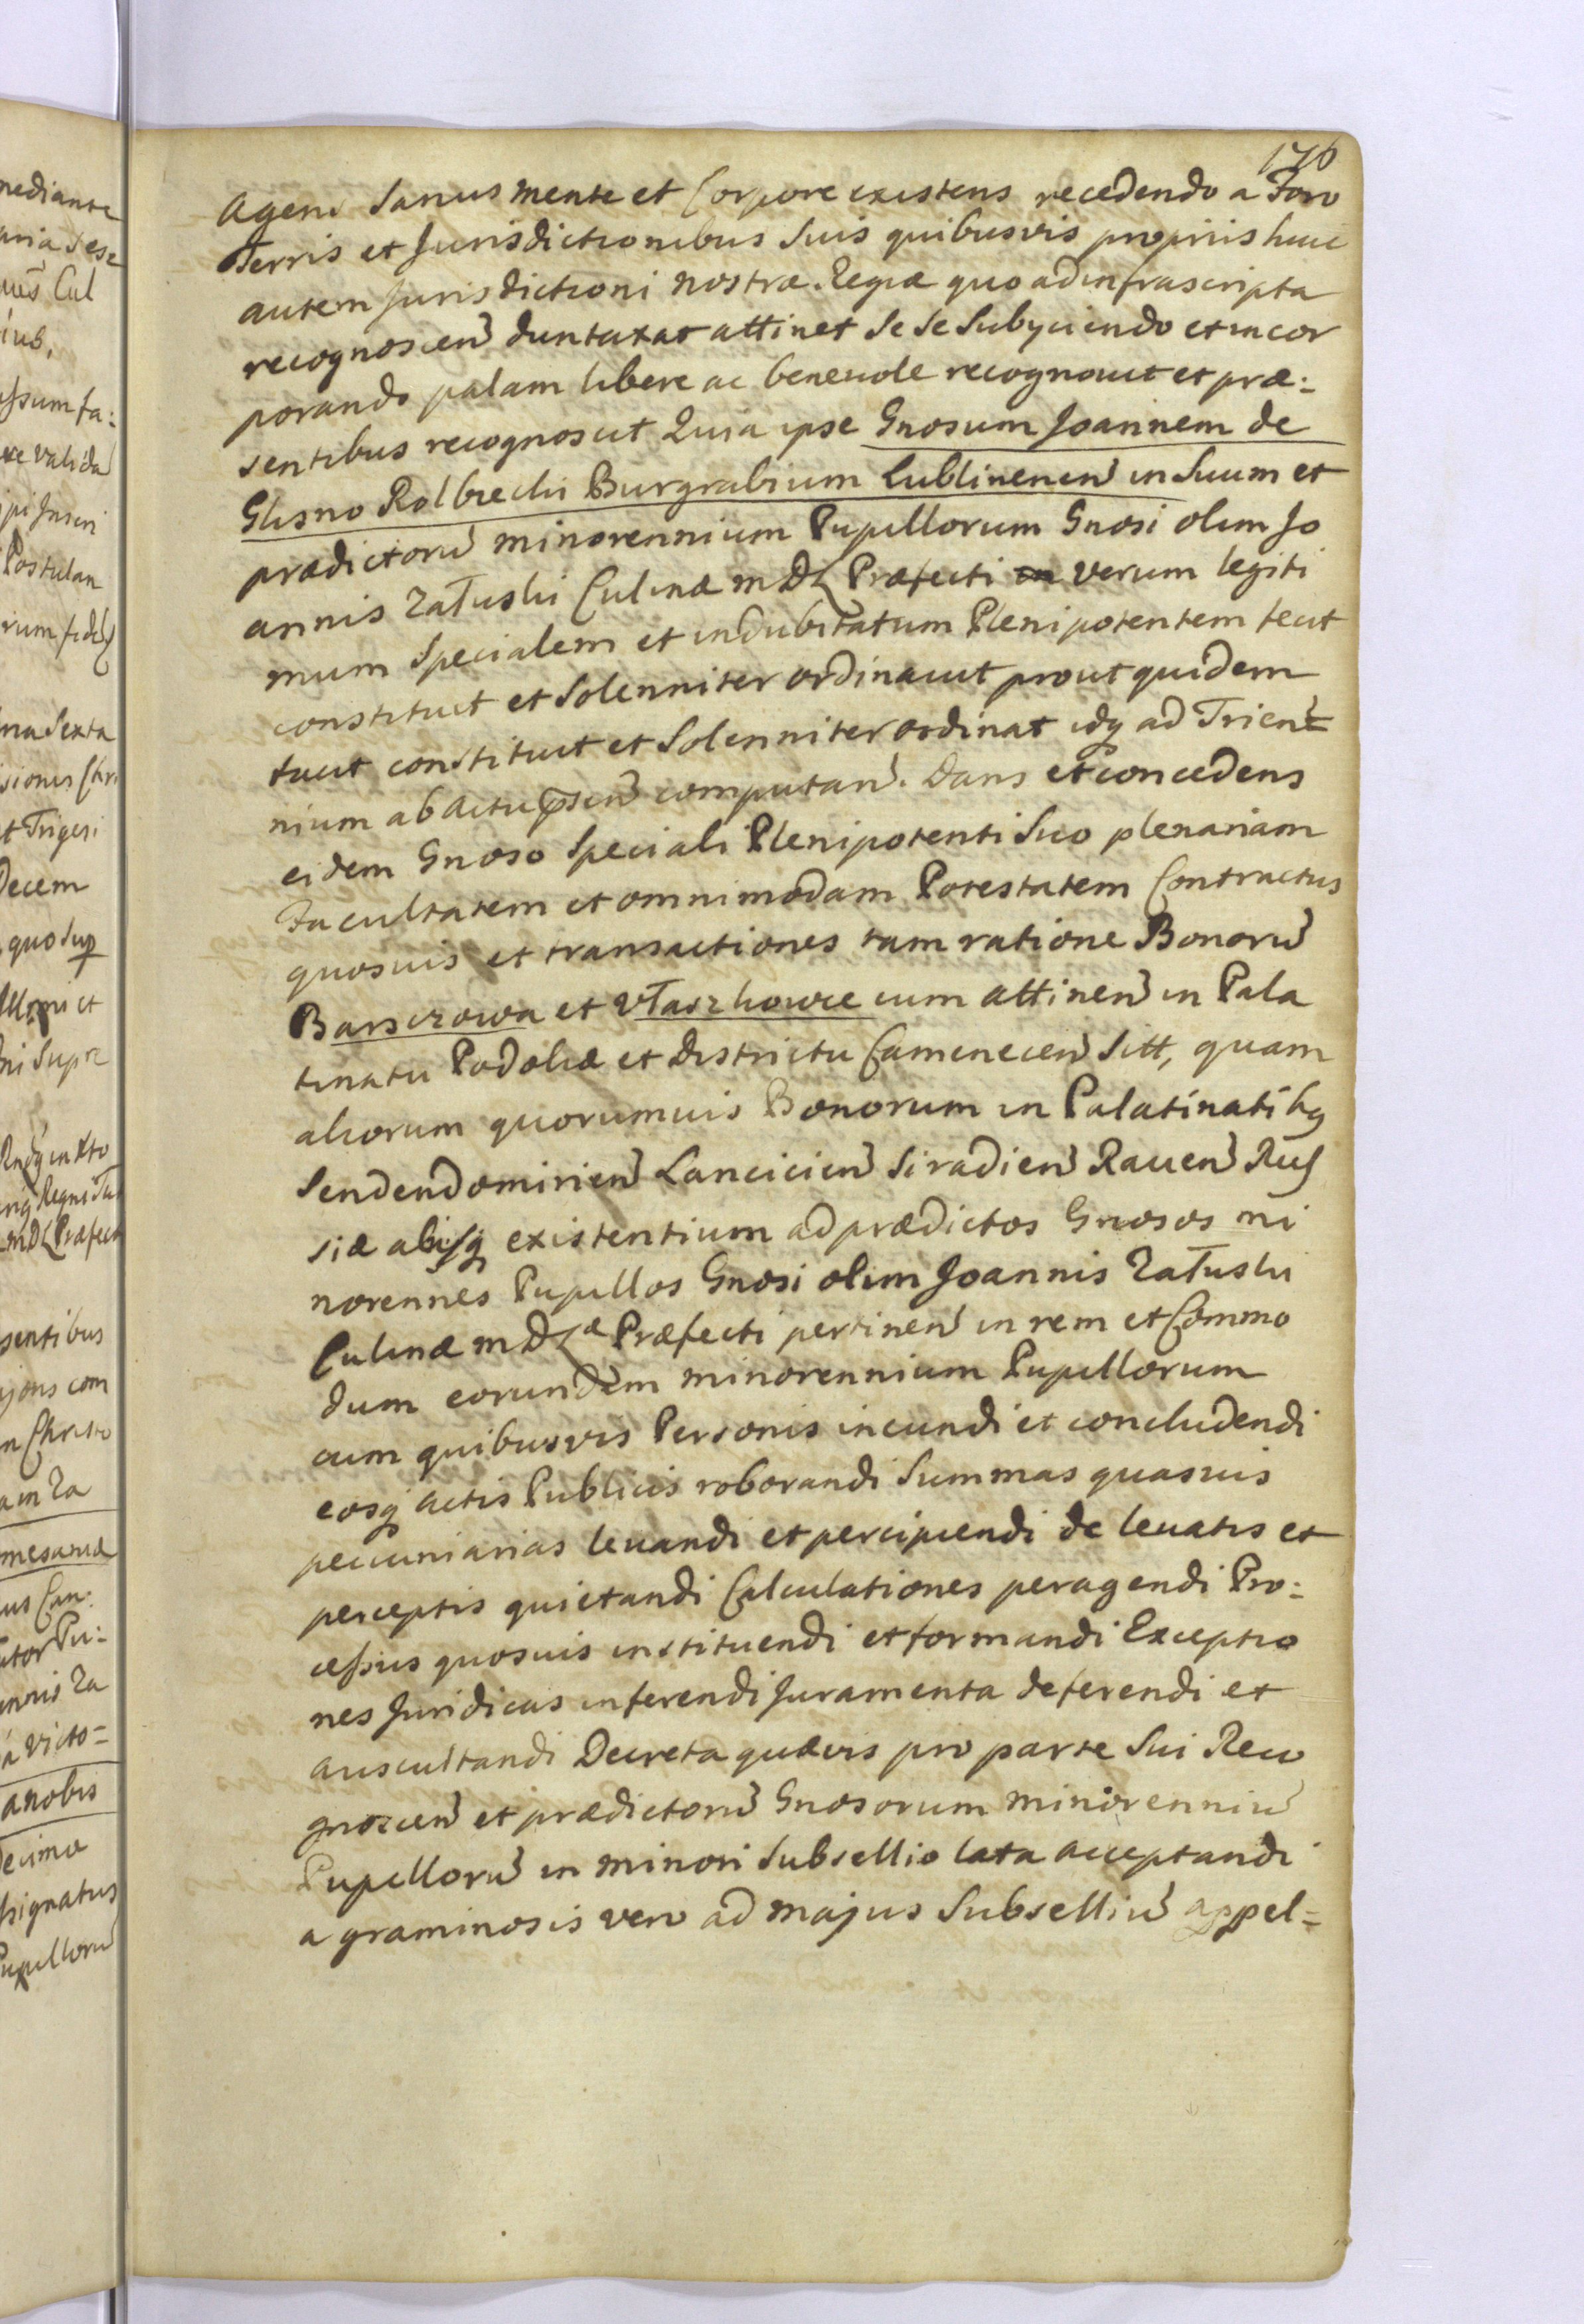 176
Agens Sanus mente et Corpore existens recedendo a Foro
Terris et Jurisdictionibus Suis quibusvis propriis huic
autem Jurisdictioni nostræ Regiæ quo ad infrascripta
recognoscen duntaxat attinet Se Se Subyciendo et incor
porando palam libere ac beneuole recognouit et præ:
sentibus recognoscit Quia ipse Gnosum Joannem de
Glisno Rolbiecki Burgrabium Lublinenen in Suum et
prædictorū minorennium Pupillorum Gnosi olim Jo
annis Załuski Culinæ MDL Præfecti verum legiti
mum Specialem et indubitatum Plenipotentem fecit
constituit et Solenniter ordinauit prout quidem
facit constituit et Solenniter ordinat idq ad Trien
nium ab actu psen computan. Dans et concedens
eidem Gnoso Speciali Plenipotenti Suo plenariam
Facultatem et omnimodam Potestatem Contractus
quosuis et transactiones tam ratione Bonorū
Barsczowa et Ułaszkowce cum attinen in Pala
tinatu Podoliæ et Districtu Camenecen Sitt, quam
aliorum quorumuis Bonorum in Palatinatibq
Sendendomirien Lancicien Siradien Rauen Rus
siæ alijsq existentium ad prædictos Gnosos mi
norennes Pupillos Gnosi olim Joannis Załuski
Culinæ MDLæ Præfecti pertinen in rem et Commo
dum eorundem minorennium Pupillorum
cum quibusvis Personis ineundi et concludendi
eosq actis Publicis roborandi Summas quasuis
pecuniarias leuandi et percipiendi de leuatis et
perceptis quietandi Calculationes peragendi Pro:
cessus quosuis instituendi et formandi Exceptio
nes Juridicas inferendi Juramenta deferendi et
auscultandi Decreta quævis pro parte Sui Reco
gnoscen et prædictorū Gnosorum minorenniū
Pupillorū in minori Subsellio lata acceptandi
a graminosis vero ad majus Subselliū appel=